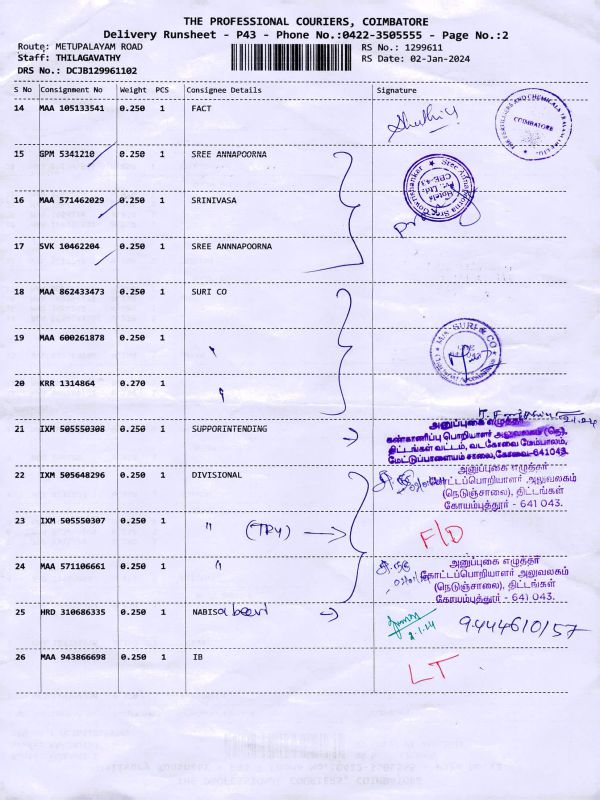 THE PROFESSIONAL COURIERS, COIMBATORE
Delivery Runsheet - P43 - Phone No.:0422-3505555 - Page No.:2
Route: METUPALAYAM ROAD
RS No.: 1299611
Staff: THILAGAVATHY
RS Date: 02-Jan-2024
DRS No.: DCJB129961102
S No Consignment No Weight PCS Consignee Details Signature
14 MAA 105133541 0.250 1 FACT
COIMBATORE
15 GPM 5341210 0.250 1 SREE ANNAPOORNA
16 MAA 571462029 0.250 1 SRINIVASA
17 SVK 10462204 0.250 1 SREE ANNNAPOORNA
18 MAA 862433473 0.250 1 SURI CO
19 MAA 600261878 0.250 1 "
M/s. SURI & CO
20 KRR 1314864 0.270 1 "
21 IXM 505550308 0.250 1 SUPPORINTENDING
அனுப்புகை எழுத்தர்
கண்காணிப்பு பொறியாளர் அலுவலகம் (நெ),
திட்டங்கள் வட்டம், வடகோவை மேம்பாலம்,
மேட்டுப்பாளையம் சாலை, கோவை-641043.
22 IXM 505648296 0.250 1 DIVISIONAL
அனுப்புகை எழுத்தர்
கோட்டப்பொறியாளர் அலுவலகம்
(நெடுஞ்சாலை), திட்டங்கள்
கோயம்புத்தூர் - 641 043.
23 IXM 505550307 0.250 1 "
F/D
24 MAA 571106661 0.250 1 "
அனுப்புகை எழுத்தர்
கோட்டப்பொறியாளர் அலுவலகம்
(நெடுஞ்சாலை), திட்டங்கள்
கோயம்புத்தூர் - 641 043.
25 HRD 310686335 0.250 1 NABISA beevi
2.1.24 9444610157
26 MAA 943866698 0.250 1 IB
LT